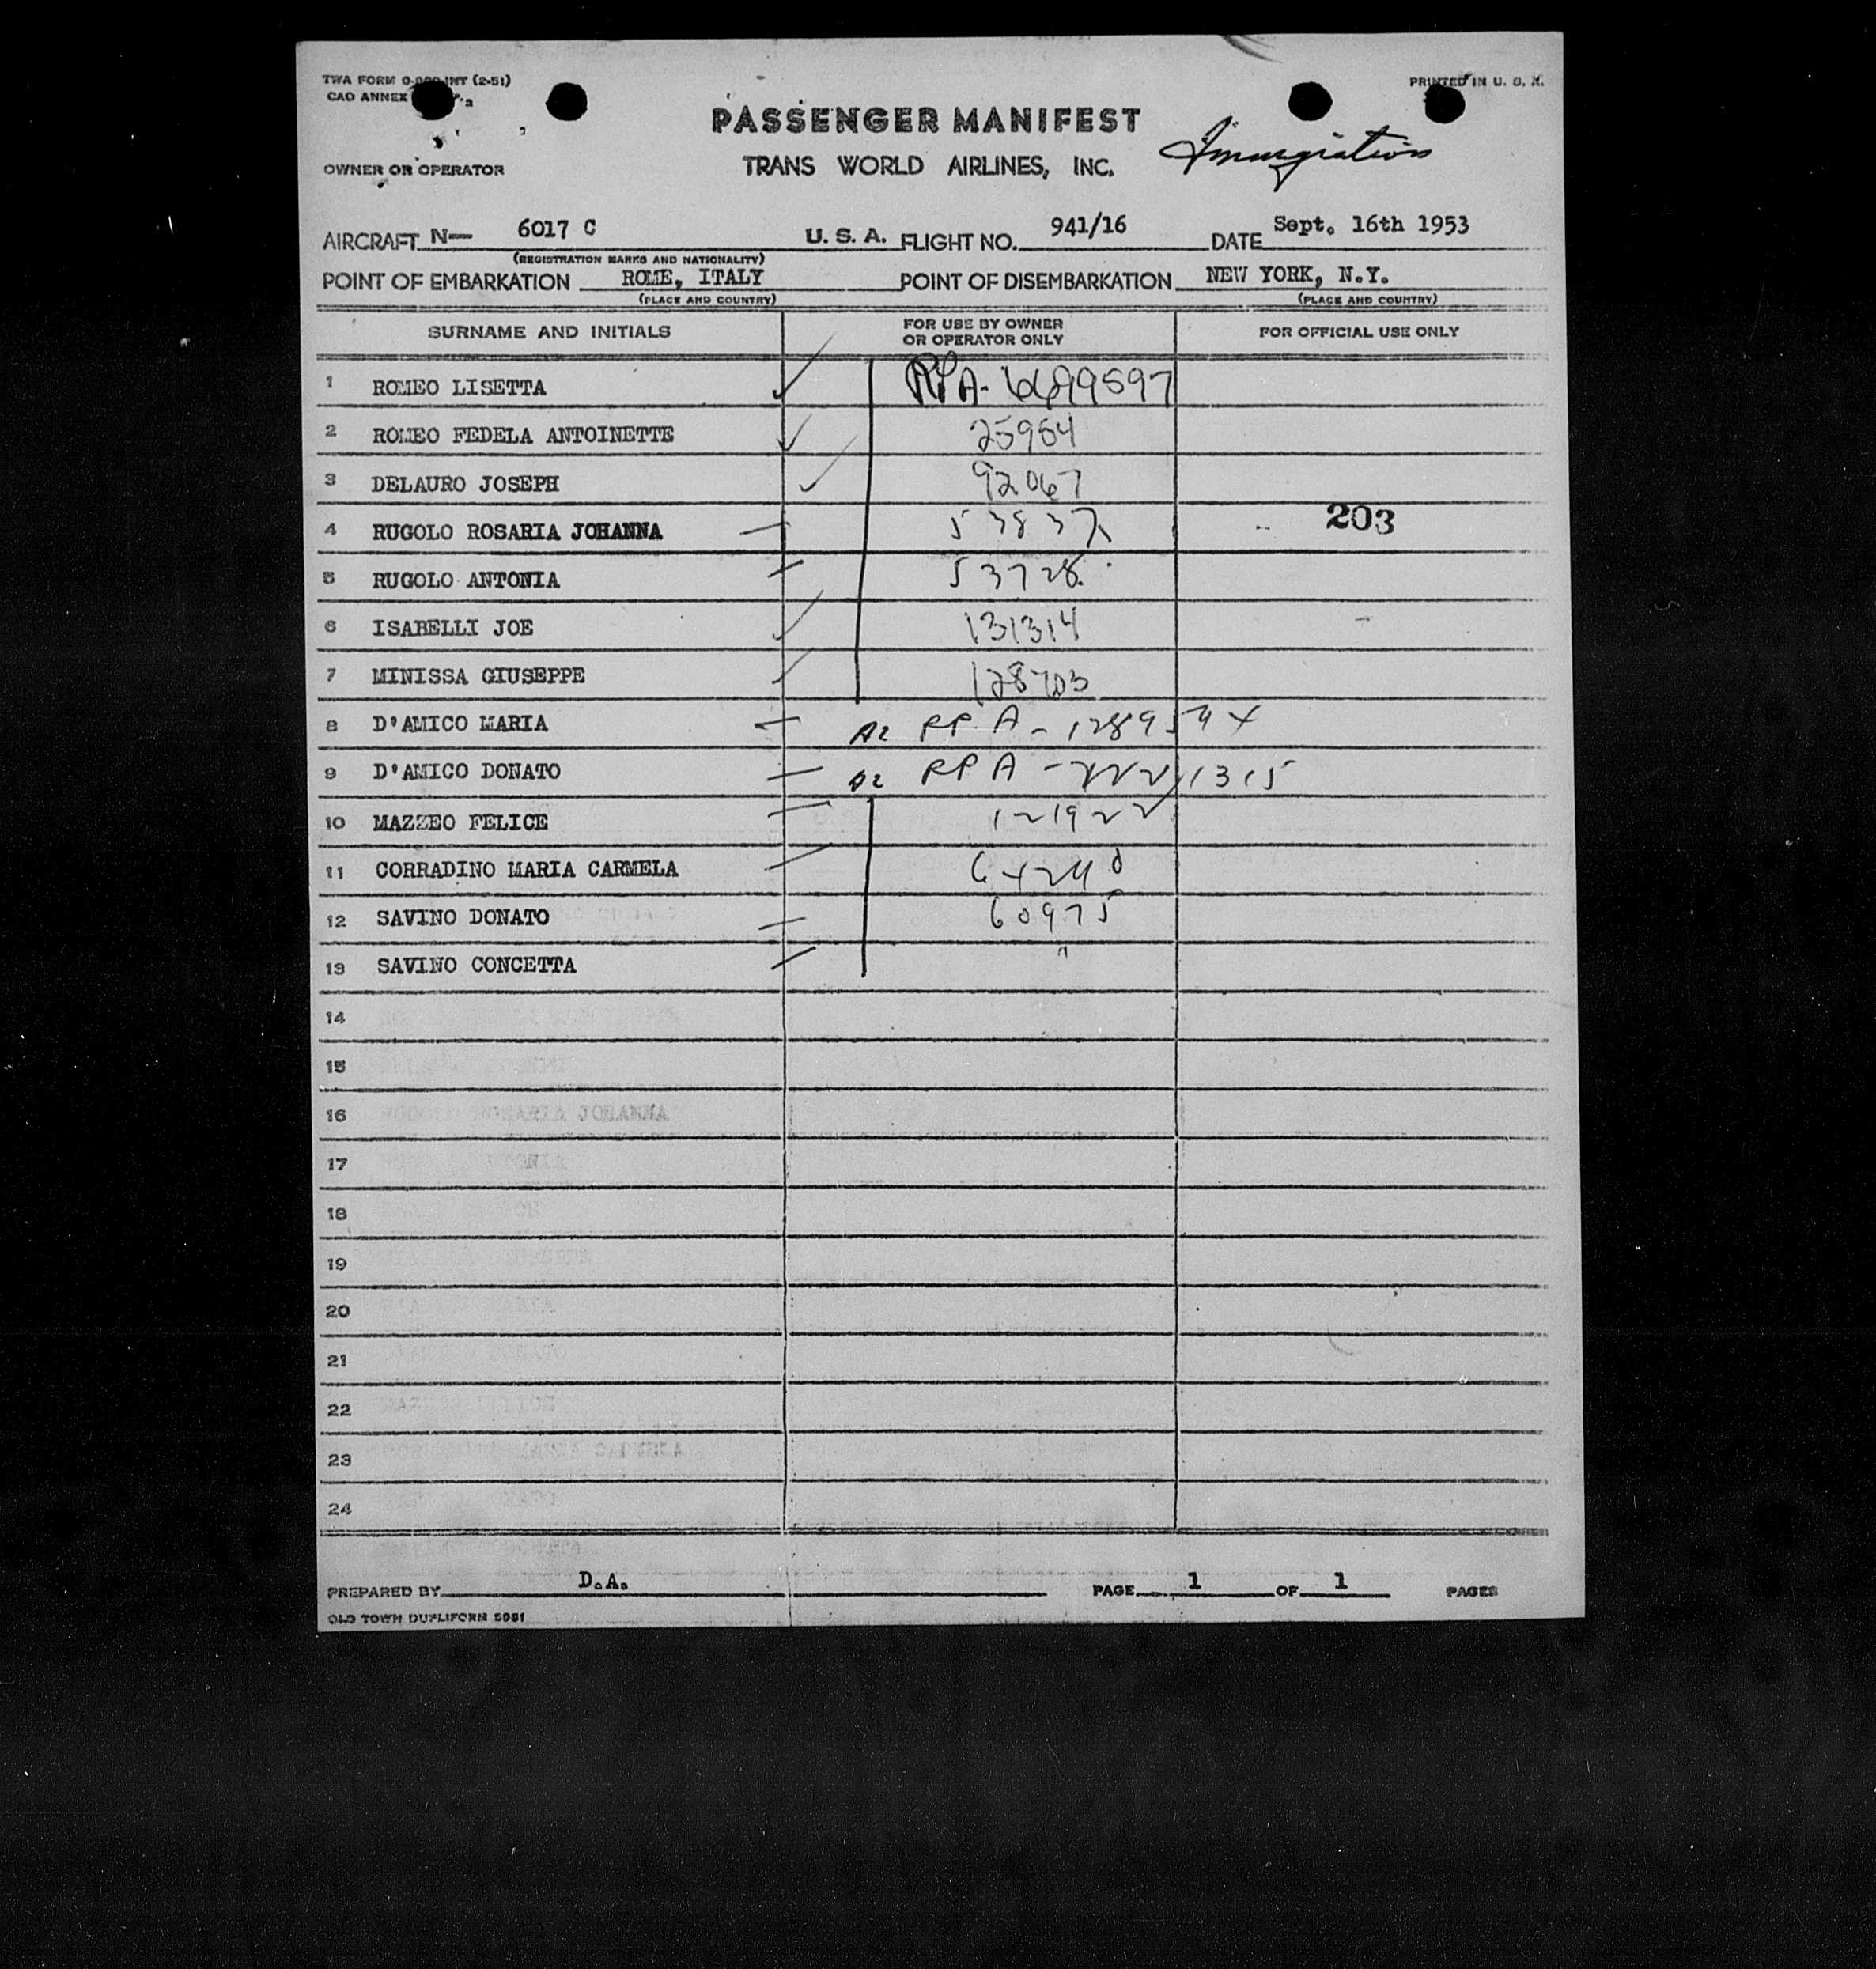 TWA FORM
PRINTED IN U. S. A.
CAO ANNEX
PASSENGER MANIFEST
Immigration
OWNER OR OPERATOR
TRANS WORLD AIRLINES, INC.
AIRCRAFT N— 6017 C U. S. A. FLIGHT NO. 941/16 DATE Sept. 16th 1953
(REGISTRATION MARKS AND NATIONALITY)
POINT OF EMBARKATION ROME, ITALY POINT OF DISEMBARKATION NEW YORK, N.Y.
(PLACE AND COUNTRY) (PLACE AND COUNTRY)
SURNAME AND INITIALS FOR USE BY OWNER OR OPERATOR ONLY FOR OFFICIAL USE ONLY
1 ROMEO LISETTA RPA-6699597
2 ROMEO FEDELA ANTOINETTE 25984
3 DELAURO JOSEPH 92067
4 RUGOLO ROSARIA JOHANNA 203
5 RUGOLO ANTONIA 53728
6 ISABELLI JOE 131314
7 MINISSA GIUSEPPE 128703
8 D'AMICO MARIA
9 D'AMICO DONATO
10 MAZZEO FELICE 121922
11 CORRADINO MARIA CARMELA
12 SAVINO DONATO 60975
13 SAVINO CONCETTA "
14
15
16
17
18
19
20
21
22
23
24
PREPARED BY D.A. PAGE 1 OF 1 PAGES
OLD TOWN DUPLIFORM 5981